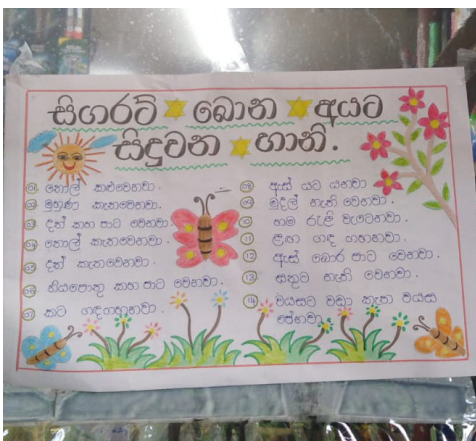 සිගරට් බොන අයට
සිදුවන හානි.
01 තොල් කළුවෙනවා.
02 මුහුණ කැතවෙනවා.
03 දත් කහ පාට වෙනවා.
04 තොල් කැතවෙනවා.
05 දත් කැතවෙනවා.
06 නියපොතු කහ පාට වෙනවා.
07 කට ගඳගහනවා.
08 ඇස් යට යනවා.
09 මුදල් නැති වෙනවා.
10 හම රැළි වැටෙනවා.
11 ළඟ ගඳ ගහනවා.
12 ඇස් බොර පාට වෙනවා.
13 සතුට නැති වෙනවා.
14 වයසට වඩා කැත වයස
පේනවා.